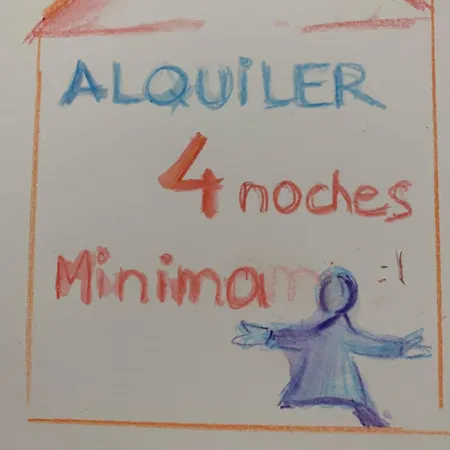 ALQUiLER
4 noches
Minima